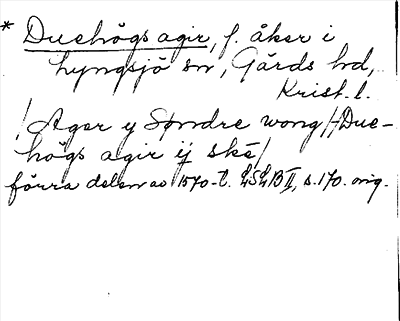 * Duehögs agir, f. åker i
Lyngsjö sn, Gärds hd,
Krist. l.
/ Ager y Søndre wong // Due-
högs agir ij skē /
förra delen av 1570-t. LSLB II, s. 170. orig.